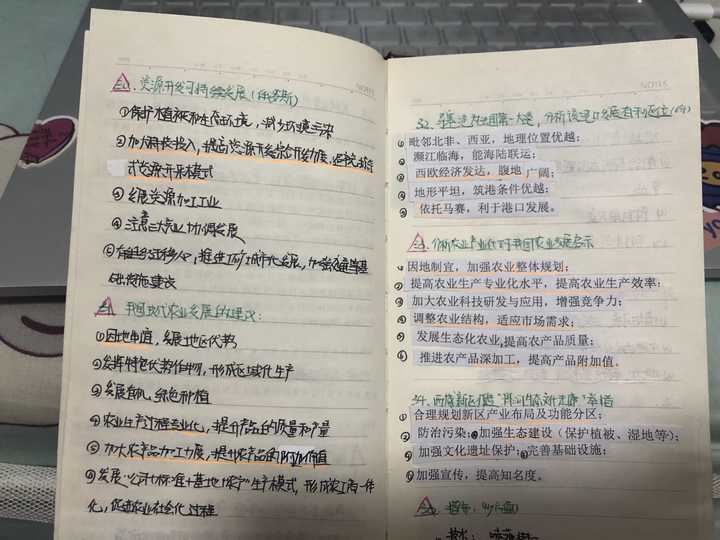 31. 资源开发可持续发展(俄罗斯)
①保护植被和生态环境，减少环境污染
②加大科技投入，提高资源开发综合利用力度，
式资源开采模式
③发展资源加工工业
④注意三大产业协调发展
推进工矿城市化发展，加强交通等基
础设施建设
我国现代农业发展的建议：
①因地制宜，发展地区优势
②发挥特色优势作物，形成区域化生产
③发展有机、绿色种植
④农业生产过程专业化，提升产品的质量和产量
⑤加大农产品加工力度，提升农产品的附加价值
⑥发展"公司+标准+基地+农户"生产模式，形成农工商一体
化，促进农业社会化过程
NOTES
32. 第一大港，分析该港口发展有利区位(4分)
①毗邻北非、西亚，地理位置优越；
②濒江临海，能海陆联运；
③西欧经济发达，腹地广阔；
④地形平坦，筑港条件优越；
⑤依托马赛，利于港口发展。
33. 分析农业产业化对我国农业发展启示
①因地制宜，加强农业整体规划；
②提高农业生产专业化水平，提高农业生产效率；
③加大农业科技研发与应用，增强竞争力；
④调整农业结构，适应市场需求；
⑤发展生态化农业,提高农产品质量；
⑥推进农产品深加工，提高产品附加值。
34. 西咸新区打造 举措
①合理规划新区产业布局及功能分区；
②防治污染；③加强生态建设（保护植被、湿地等）；
④加强文化遗址保护；⑤完善基础设施；
⑥加强宣传，提高知名度。